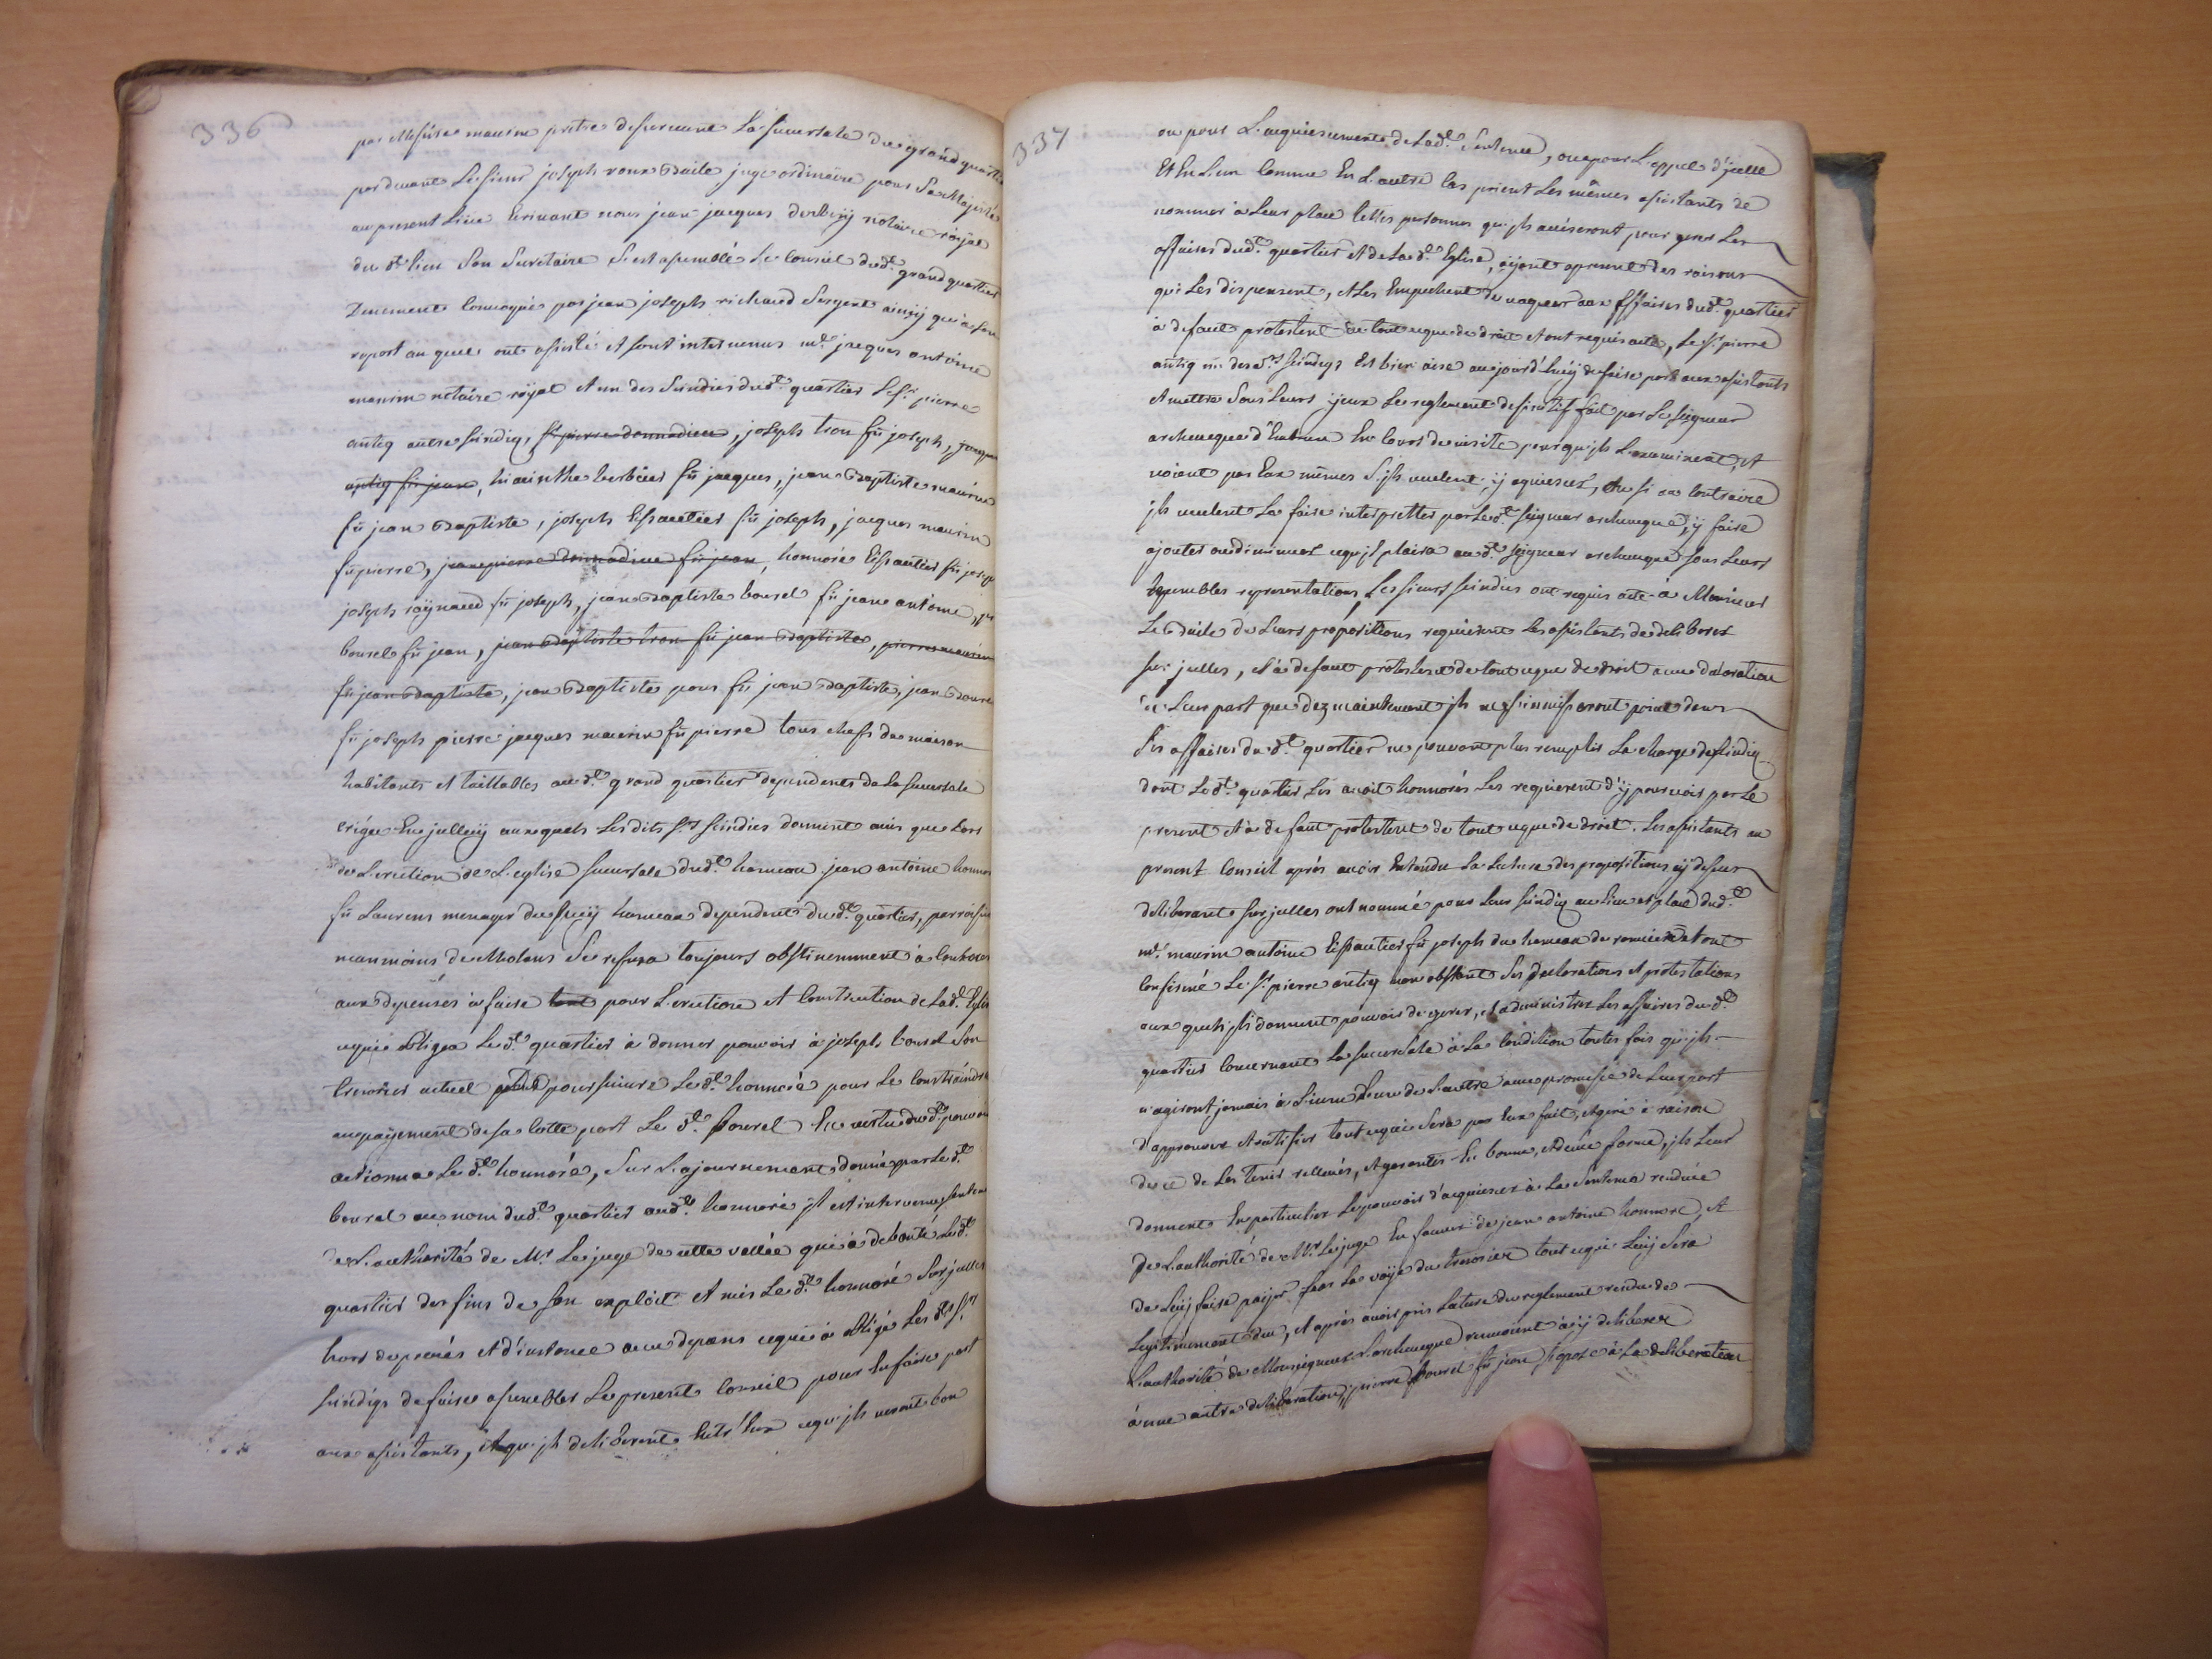 336
par Messire maurin pretre desservant La succursale du grand quartie
pardevant Le sieur joseph roux Baile juge ordinaire pour Sa Majesté
au present Lieu Ecrivant nous jean jacques derbezÿ notaire roÿal
du d.t lieu son Secretaire S'est assemblé Le Conseil dud.t grand quartier
Duement Convoqué par jean joseph richaud Sergent ainsÿ qu'a son
report auquel ont assisté et sont intervenus m.e jacques antoine
maurin notaire roÿal et un des Sindics dud.t quartier Le s.r pierre
antiq autre sindiq, s.r pierre donnadieu, joseph tron fû joseph, jacques
antiq fû jean, hiacinthe berbeier fû jacques, jean Baptiste maurin
fû jean Baptiste, joseph Eissautier fû joseph, jacques maurin
fû pierre, jean pierre donnadieu fû jean, honnoré Eissautier fû josep
joseph raÿnaud fû joseph, jean Baptiste bourel fû jean antoine,
bourel fû jean, jean Baptiste tron fû jean Baptiste, pierre maurin
fû jean Baptiste, jean Baptiste pour fû jean Baptiste, jean
fû joseph pierre jacques maurin fû pierre tous chefs de maison
habitants et taillables aud.t grand quartier dependents de La succursale
erigée En jcelluÿ auxquels Lesdits s.rs sindics donnent avis que Lors
de L'erection de L'eglise succursale dud.t hameau jean antoine honnor
fû Laurens menager du hameau dependent dud.t quartier, parroisse
neanmoins de Molans Se refusa toujours obstinemment à Contribuer
aux depenses à faire tout pour L'erection et Construction de Lad.t Eglis
cequi obligea Led.t quartier à donner pouvoir à joseph bourel son
tresorier actuel pour poursuivre Led.t honnoré pour Le Constraindre
au paÿement de sa Cotte part Led.t bourel En vertu dud.t pouvoir
actionna Led.t honnoré, Sur L'ajournement donné par Led.t
bourel au nom dud.t quartier aud.t honnoré jl est intervenu senten
de L'authorité de M.r Le juge de cette vallée qui a debouté Led.t
quartier des fins de son exploit et mis Led.t honnoré Sur jcelles
hors de procés et d'instance avec depens cequi a obligé Les d.ts s.rs
sindiqs de faire assembler Le present Conseil pour En faire part
aux assistants, et qu'jls deliberent Entr'Eux cequ'jls veront bon
337
ou pour L'acquiescement de Lad.te Sentence, ou pour L'appel d'jcelle
Et En L'un Comme En L'autre Cas prient Les mêmes assistants de
nommer à Leur place telles personnes qu'jls aviseront pour gerer Les
affaires dud.t quartier et de Lad.te Eglise, aÿant apresent des raisons
qui Les dispensent, et Les Empechent de vaquer aux affaires dud.t quartier
à defaut protestent de tout ceque de droit et ont requis acte, Le s.r pierre
antiq un desd.ts sindiqs Est bien aise aujourd'huÿ de faire part aux assistants
et mettre Sous Leurs ÿeux Le reglement definitif fait par Le seigneur
archeveque d'Embrun En Cours de visite pour qu'jls L'examinent, et
voient par Eux mêmes S'jls veulent ÿ aquiescer, ou si au Contraire
jls veulent La faire interpretter par Le d.t seigneur archeveque, ÿ faire
ajouter ou diminuer cequ'jl plaira aud.t seigneur archeveque sous Leurs
humbles representations, Les sieurs sindics ont requis acte à Monsieur
Le Baile de Leurs propositions requierent Les assistants de deliberer
sur jcelles, et à defaut protestent de tout ceque de droit avec declaration
de Leur part que dez maintenant jls ne s'immisceront point dans
Les affaires dud.t quartier ne pouvant plus remplir La charge de sindiq
dont Led.t quartier Les avoit honnorés Les requierent d'ÿ pourvoir par Le
present et à defaut protestent de tout ceque de droit. Les assistants au
present Conseil aprés avoir Entendu La Lecture des propositions cÿ dessus
deliberant sur jcelles ont nommé pour Leur sindiq au Lieu et place dud.t
m.e maurin antoine Eissautier fû joseph du hameau de et ont
Confirmé Le s.r pierre antiq nonobstant Ses declarations et protestations
aux quels jls donnent pouvoir de gerer, et administrer Les affaires dud.t
quartier Concernant La succursale à La Condition toutes fois qu'jls
n'agiront jamais à L'jnsceu L'un de L'autre avec promesse de Leur part
d'approuver et ratifier tout cequi Sera par Eux fait, et geré à raison
de ce de Les tenir rellevés, et garantis En bonne, et deüe forme, jls Leur
donnent En particulier Le pouvoir d'acquiescer à La Sentence rendüe
de L'authorité de M.r Le juge En faveur de jean antoine honnoré, et
de Luÿ faire paÿer par La voÿe du tresorier tout cequi Luÿ Sera
Legitimement deu, et aprés avoir pris Lecture du reglement rendu de
L'authorité de Monseigneur L'archeveque renvoient à ÿ deliberer
à une autre deliberation, pierre bourel fû jean s'opose à La deliberation